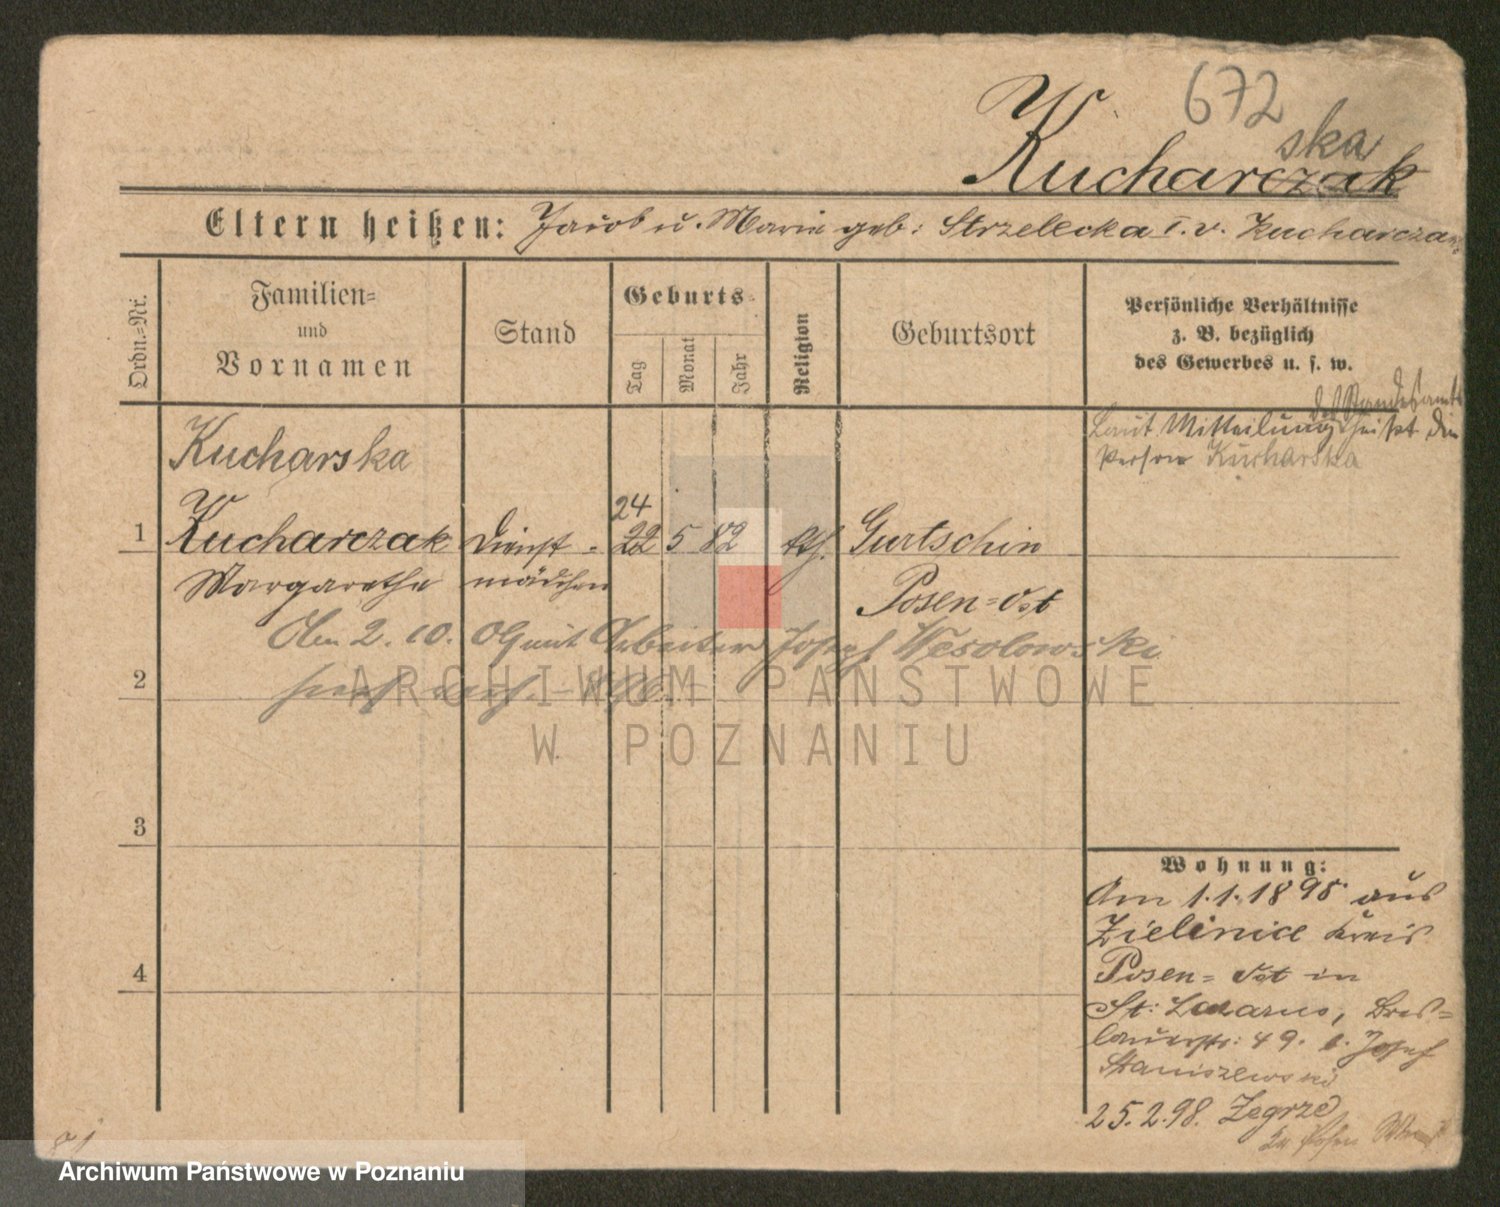 672
ska
Kucharczak
Eltern heißen: Jacob u. Marie geb: Strzelecka I. v. Kucharczak
Ordn.-Nr.
Familien-
und
Vornamen
Stand
Geburts-
Tag
Monat
Jahr
Religion
Geburtsort
Persönliche Verhältnisse
z. B. bezüglich
des Gewerbes u. s. w.
des Standesamts
Laut Mitteilung heißt die
Person Kucharska
Kucharska
24
1 Kucharczak Dienst- 22 5 82 kth. Gurtschin
Margarethe mädchen Posen-Ost
Am 2. 10. 06 mit Arbeiter Josef Wesolowski
2
3
4
Wohnung:
Am 1.1.1898 aus
Zielinice Kreis
Posen-Ost in
St: Lazarus, Bres-
lauerstr: 49. b. Josef
Staniszewski
25.2.98. Zegrze
ARCHIWUM PAŃSTWOWE
W POZNANIU
Archiwum Państwowe w Poznaniu